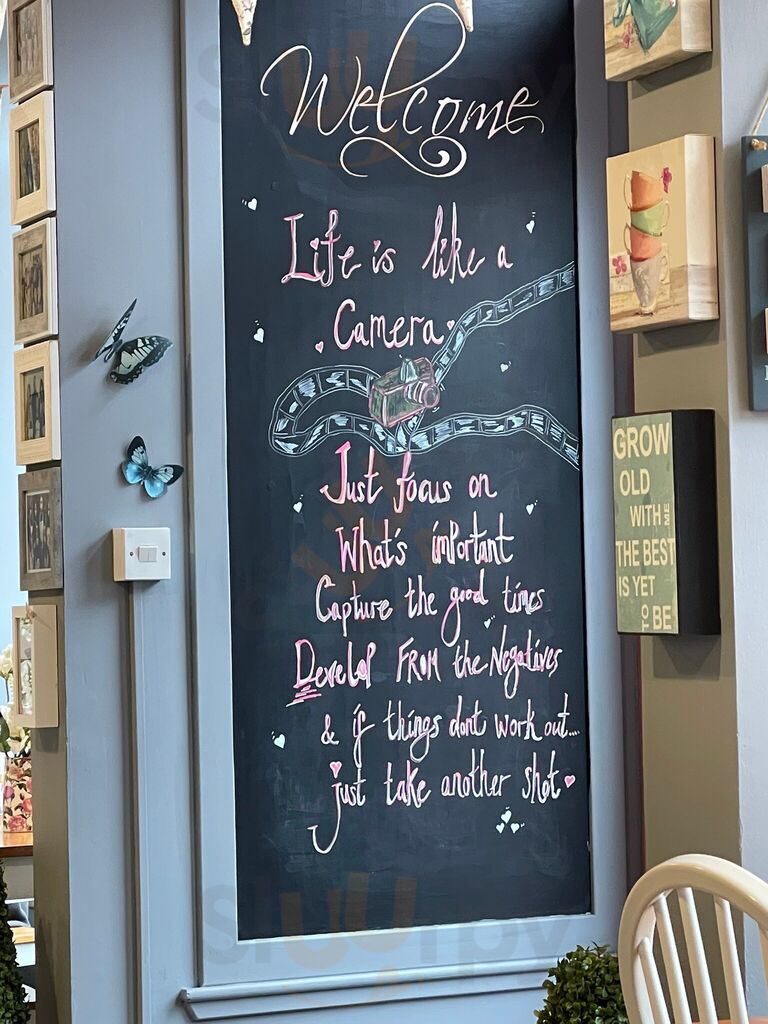 Welcome
Life is like a
Camera
Just focus on
What's important
Capture the good times
Develop FROM the Negatives
& if things dont work out...
just take another shot
GROW
OLD
WITH ME
THE BEST
IS YET
TO BE
sluurpy
sluurpy